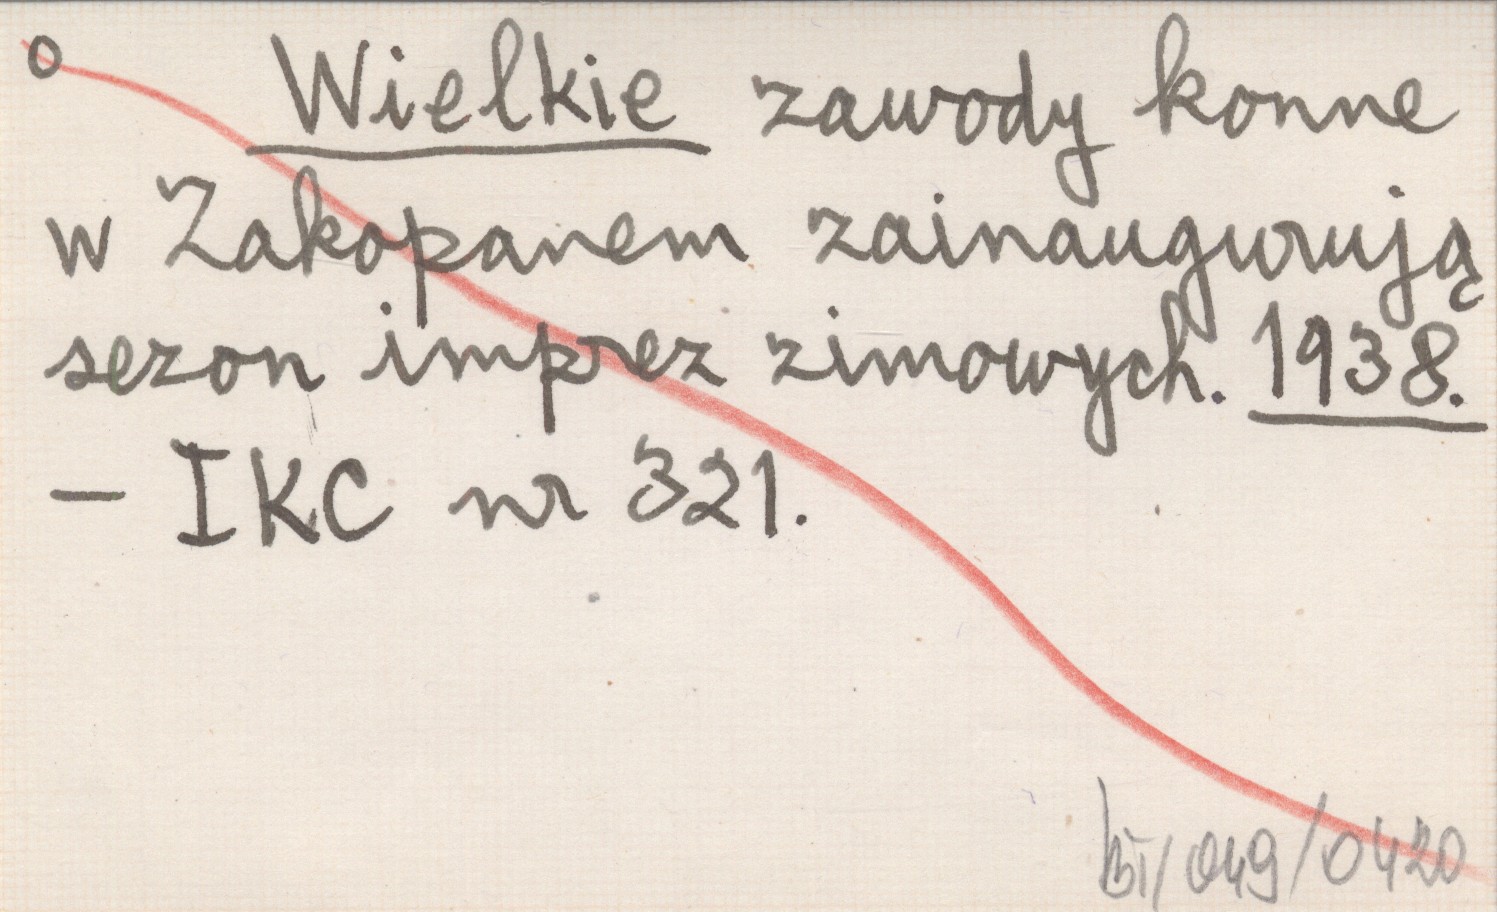 o Wielkie zawody konne
w Zakopanem zainaugurują
sezon imprez zimowych. 1938.
— IKC nr 321.
BT/049/0420